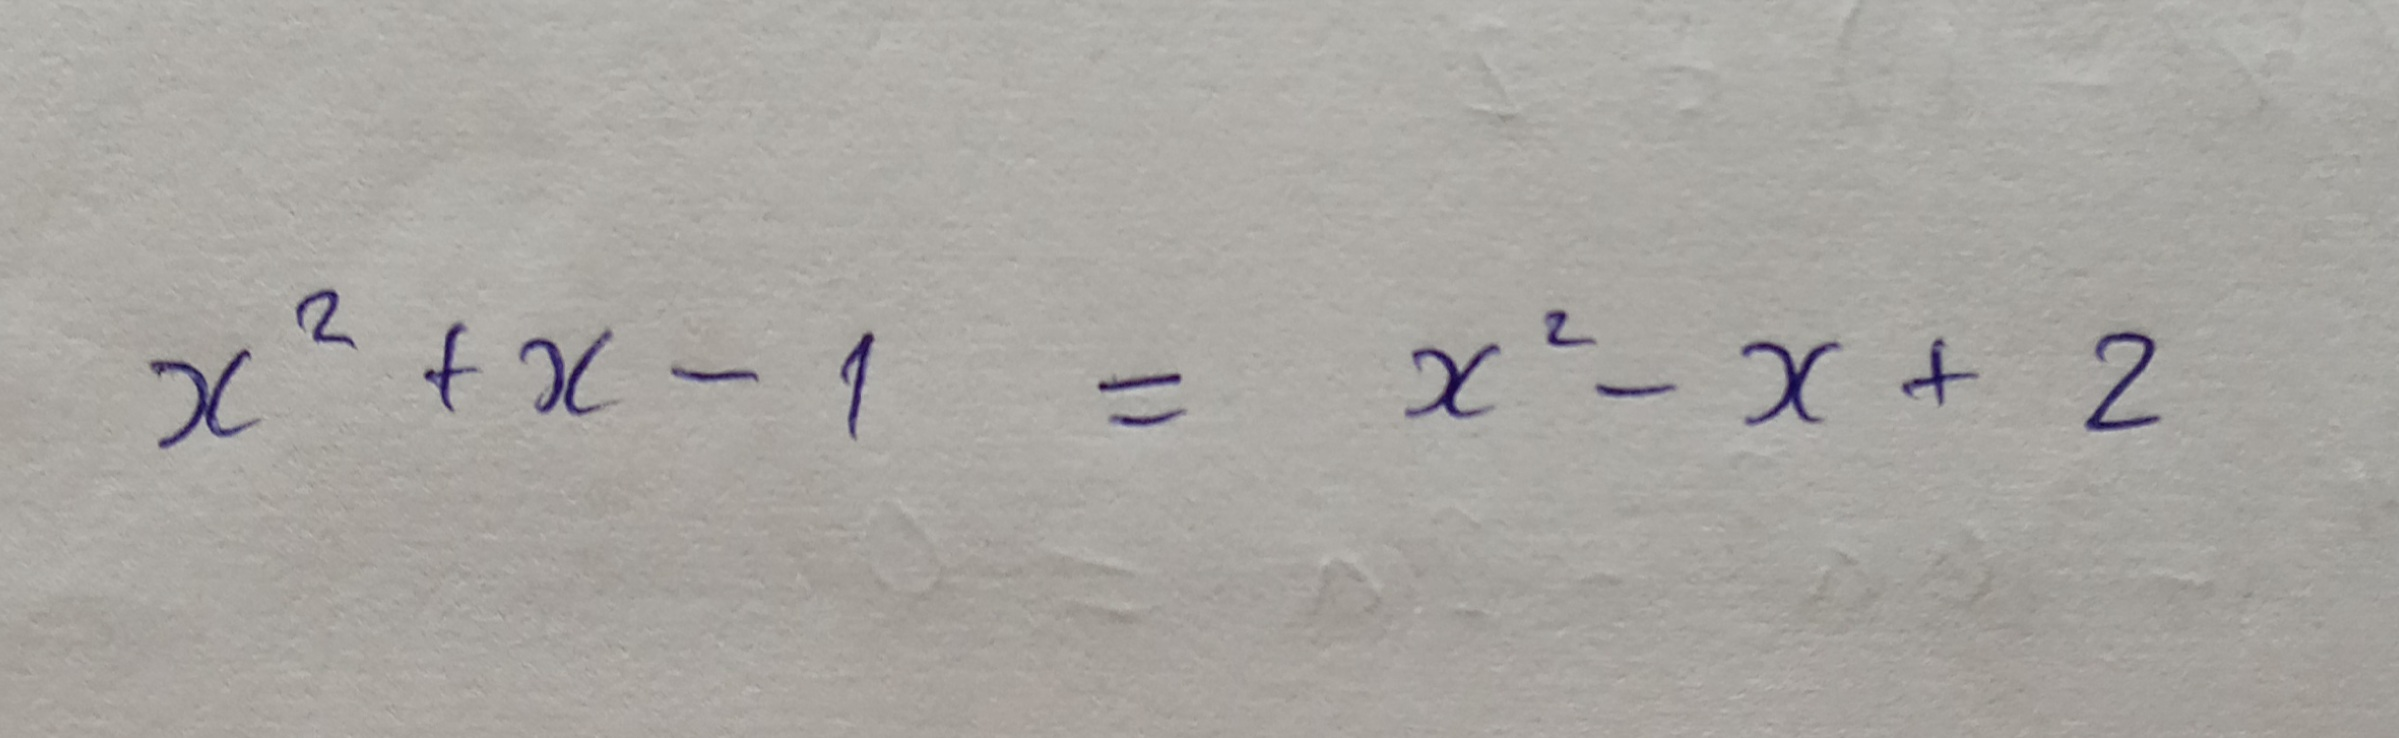 x² + x - 1 = x² - x + 2